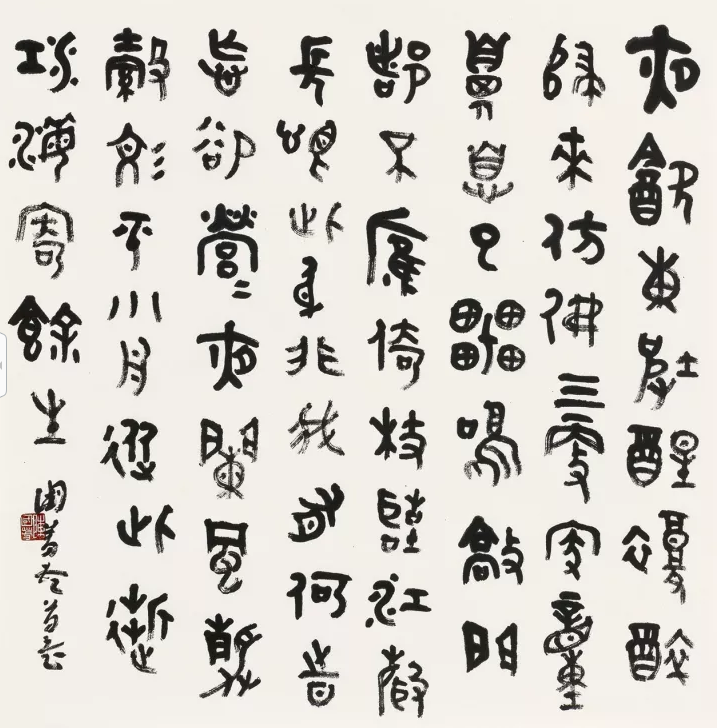 夜飲東坡醒復醉
歸來彷彿三更家童
鼻息已雷鳴敲門
都不應倚杖聽江聲
長恨此身非我有何時
忘卻營〻夜闌風靜
縠彣平小舟從此逝
江海寄餘生